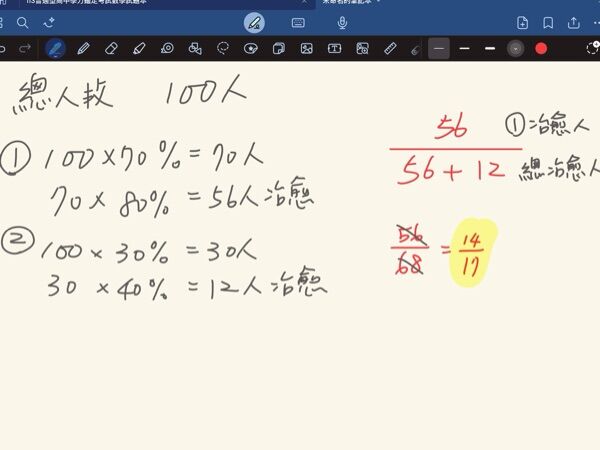 113普通型高中學力鑑定考試數學試題本
未命名的筆記本
總人數 100人
① 100×70%=70人
70×80%=56人治愈
② 100×30%=30人
30×40%=12人治愈
56 ①治愈人
56+12 總治愈人
56/68 = 14/17